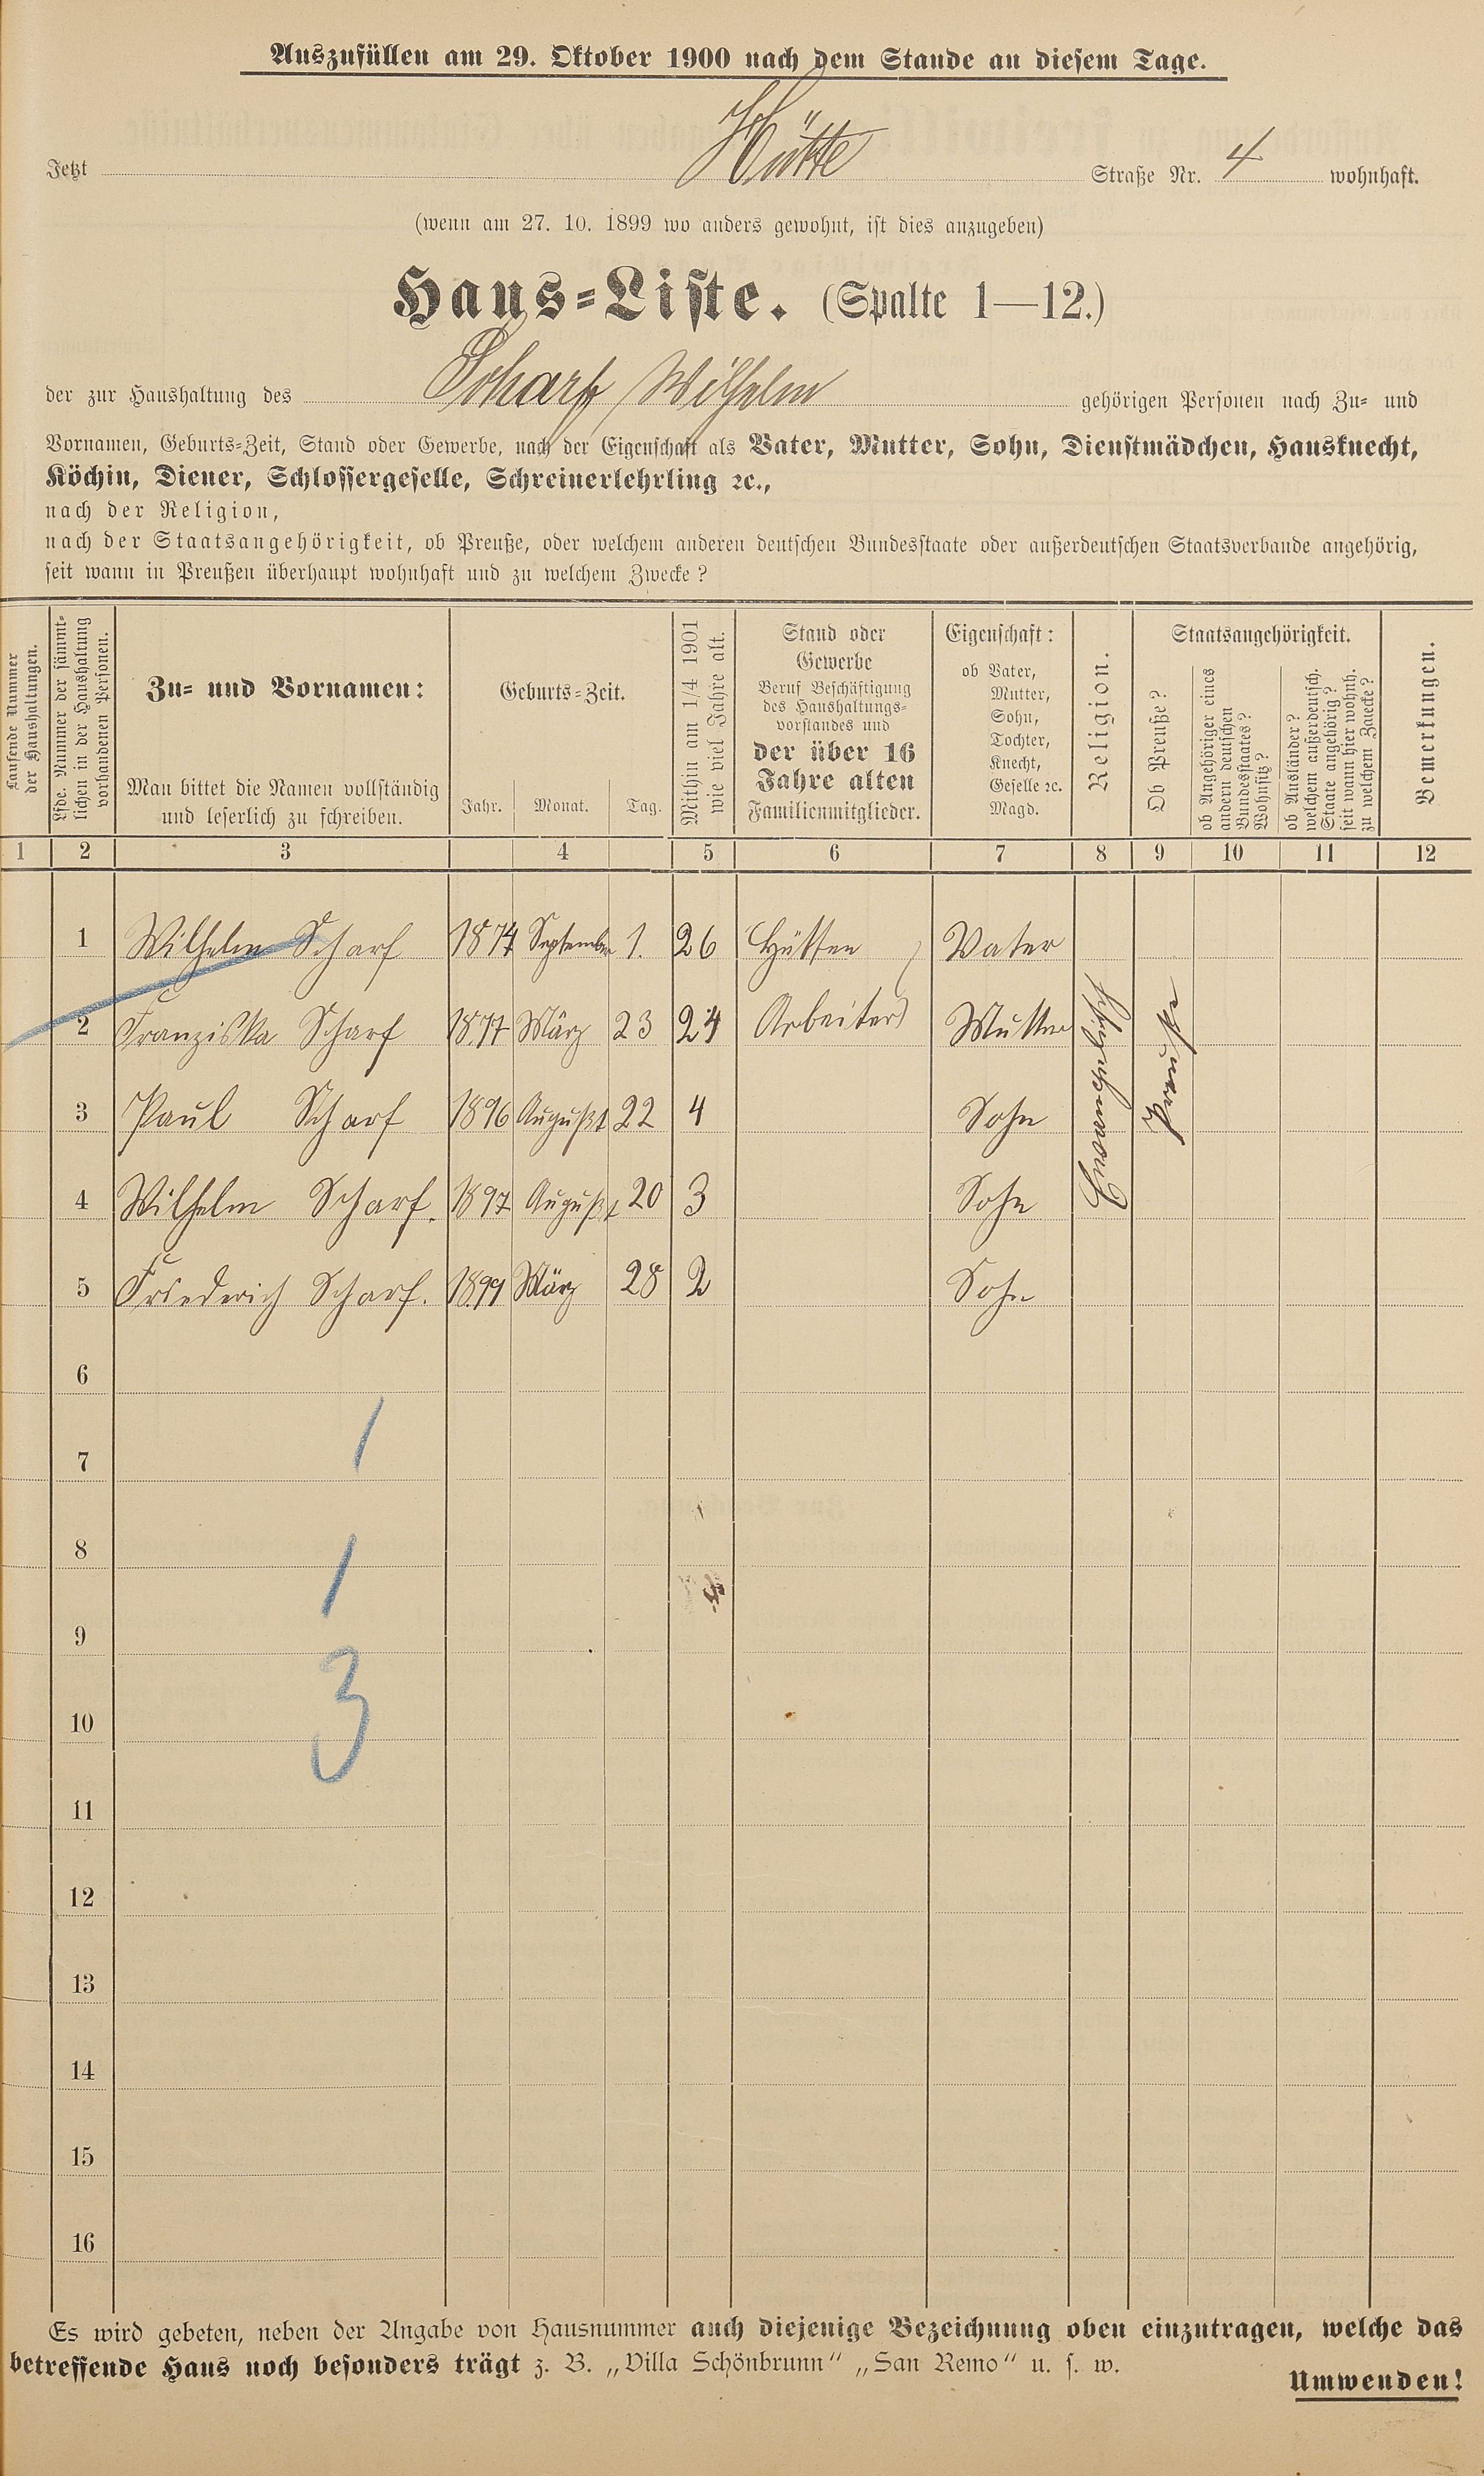 Auszufüllen am 29. Oktober 1900 nach dem Stande an diesem Tage.
Jetzt Hütte Straße Nr. 4 wohnhaft.
(wenn am 27. 10. 1899 wo anders gewohnt, ist dies anzugeben)
Haus=Liste. (Spalte 1—12.)
der zur Haushaltung des Scharf Wilhelm gehörigen Personen nach Zu= und
Vornamen, Geburts=Zeit, Stand oder Gewerbe, nach der Eigenschaft als Vater, Mutter, Sohn, Dienstmädchen, Hausknecht,
Köchin, Diener, Schlossergeselle, Schreinerlehrling ꝛc.,
nach der Religion,
nach der Staatsangehörigkeit, ob Preuße, oder welchem anderen deutschen Bundesstaate oder außerdeutschen Staatsverbande angehörig,
seit wann in Preußen überhaupt wohnhaft und zu welchem Zwecke?
Laufende Nummer
der Haushaltungen.
Lfde. Nummer der sämmt=
lichen in der Haushaltung
vorhandenen Personen.
Zu= und Vornamen:
Man bittet die Namen vollständig
und leserlich zu schreiben.
Geburts=Zeit.
Jahr. Monat. Tag.
Mithin am 1/4 1901
wie viel Jahre alt.
Stand oder
Gewerbe
Beruf Beschäftigung
des Haushaltungs=
vorstandes und
der über 16
Jahre alten
Familienmitglieder.
Eigenschaft:
ob Vater,
Mutter,
Sohn,
Tochter,
Knecht,
Geselle ꝛc.
Magd.
Religion.
Staatsangehörigkeit.
Ob Preuße?
ob Angehöriger eines
andern deutschen
Bundesstaates?
Wohnsitz?
ob Ausländer?
welchem außerdeutsch.
Staate angehörig?
seit wann hier wohnh.
zu welchem Zwecke?
Bemerkungen.
1 2 3 4 5 6 7 8 9 10 11 12
1 Wilhelm Scharf 1874 September 1. 26 Hütten Vater
2 Franziska Scharf 1877 März 23 24 Arbeiter Mutter
3 Paul Scharf 1896 August 22 4 Sohn
4 Wilhelm Scharf. 1897 August 20 3 Sohn
5 Friederich Scharf. 1899 März 28 2 Sohn
Evangelisch
Preuße
6
1
7
8
1
9
3
10
11
12
13
14
15
16
Es wird gebeten, neben der Angabe von Hausnummer auch diejenige Bezeichnung oben einzutragen, welche das
betreffende Haus noch besonders trägt z. B. „Villa Schönbrunn" „San Remo" u. s. w.
Umwenden!